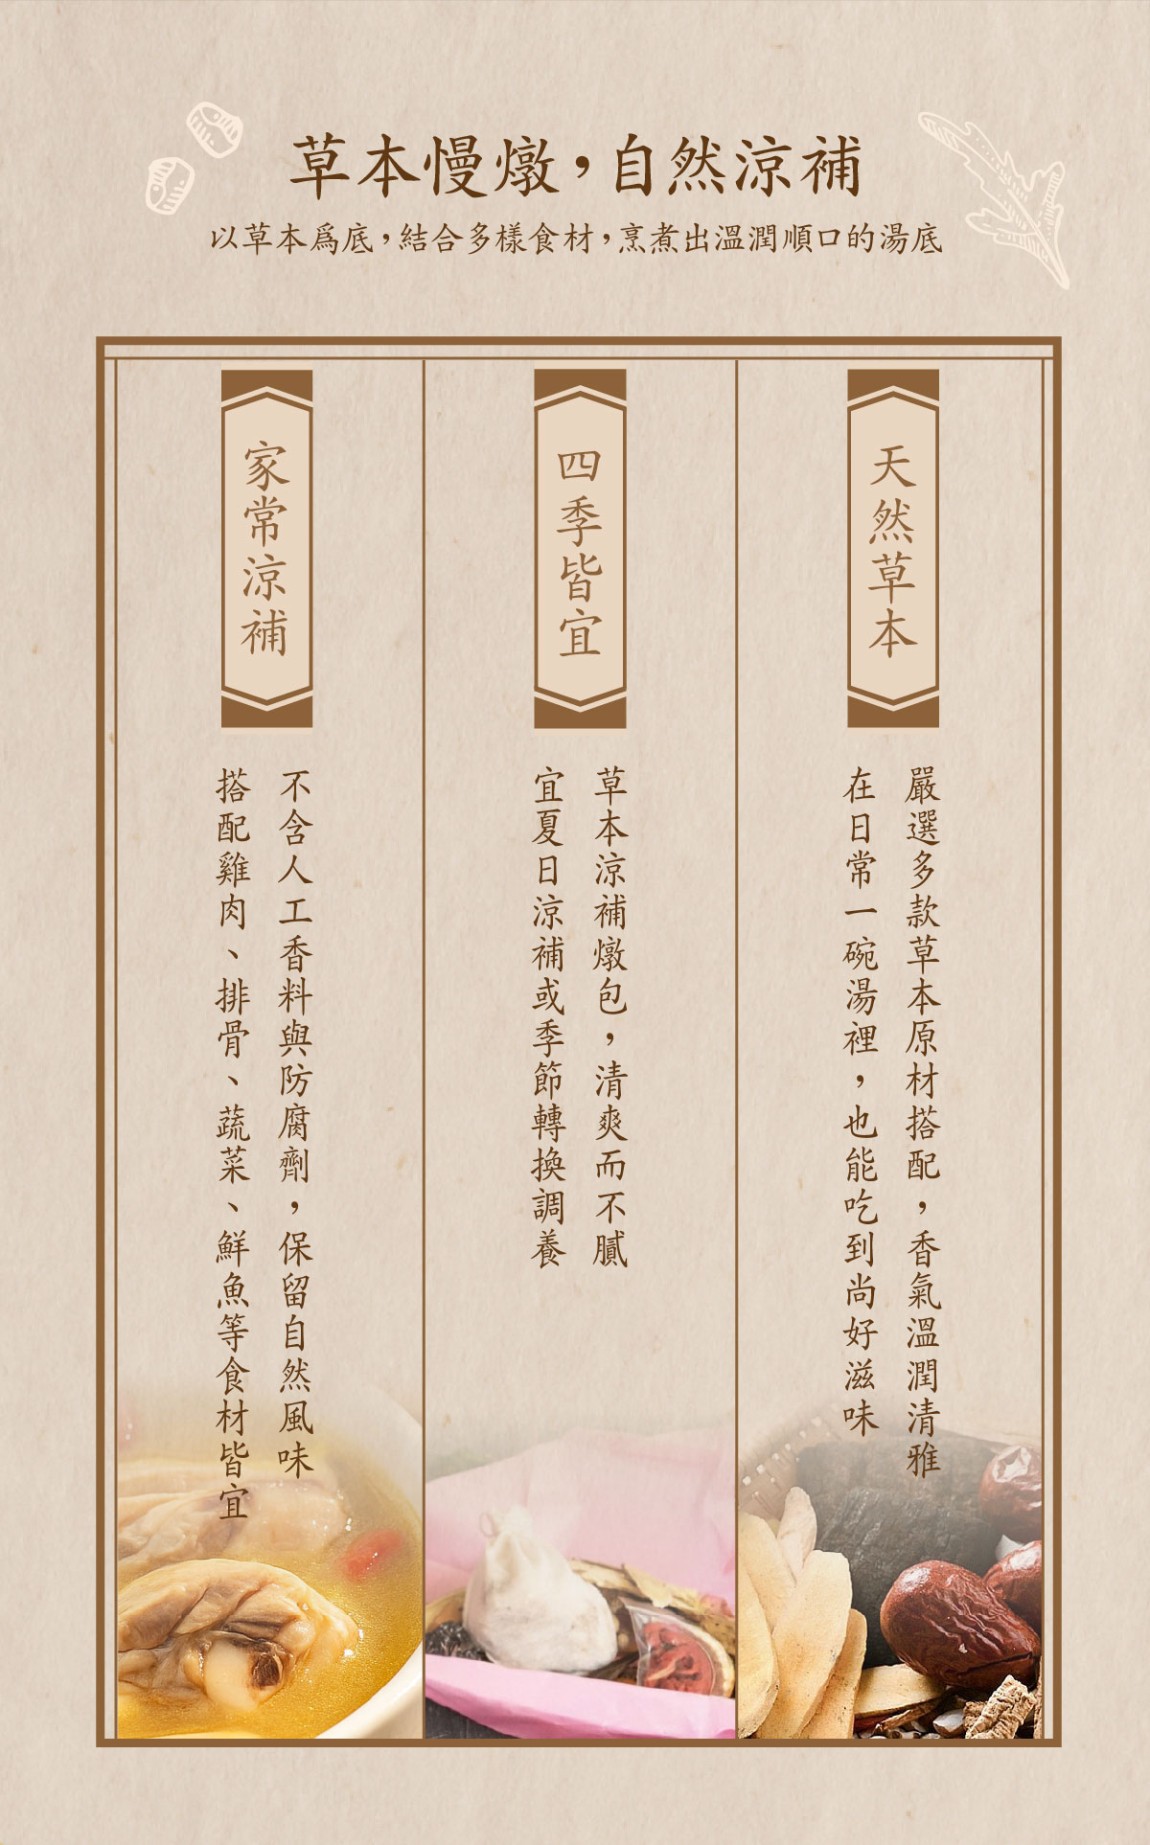 草本慢燉，自然涼補
以草本為底，結合多樣食材，烹煮出溫潤順口的湯底
天然草本
嚴選多款草本原材搭配，香氣溫潤清雅
在日常一碗湯裡，也能吃到尚好滋味
四季皆宜
草本涼補燉包，清爽而不膩
宜夏日涼補或季節轉換調養
家常涼補
不含人工香料與防腐劑，保留自然風味
搭配雞肉、排骨、蔬菜、鮮魚等食材皆宜